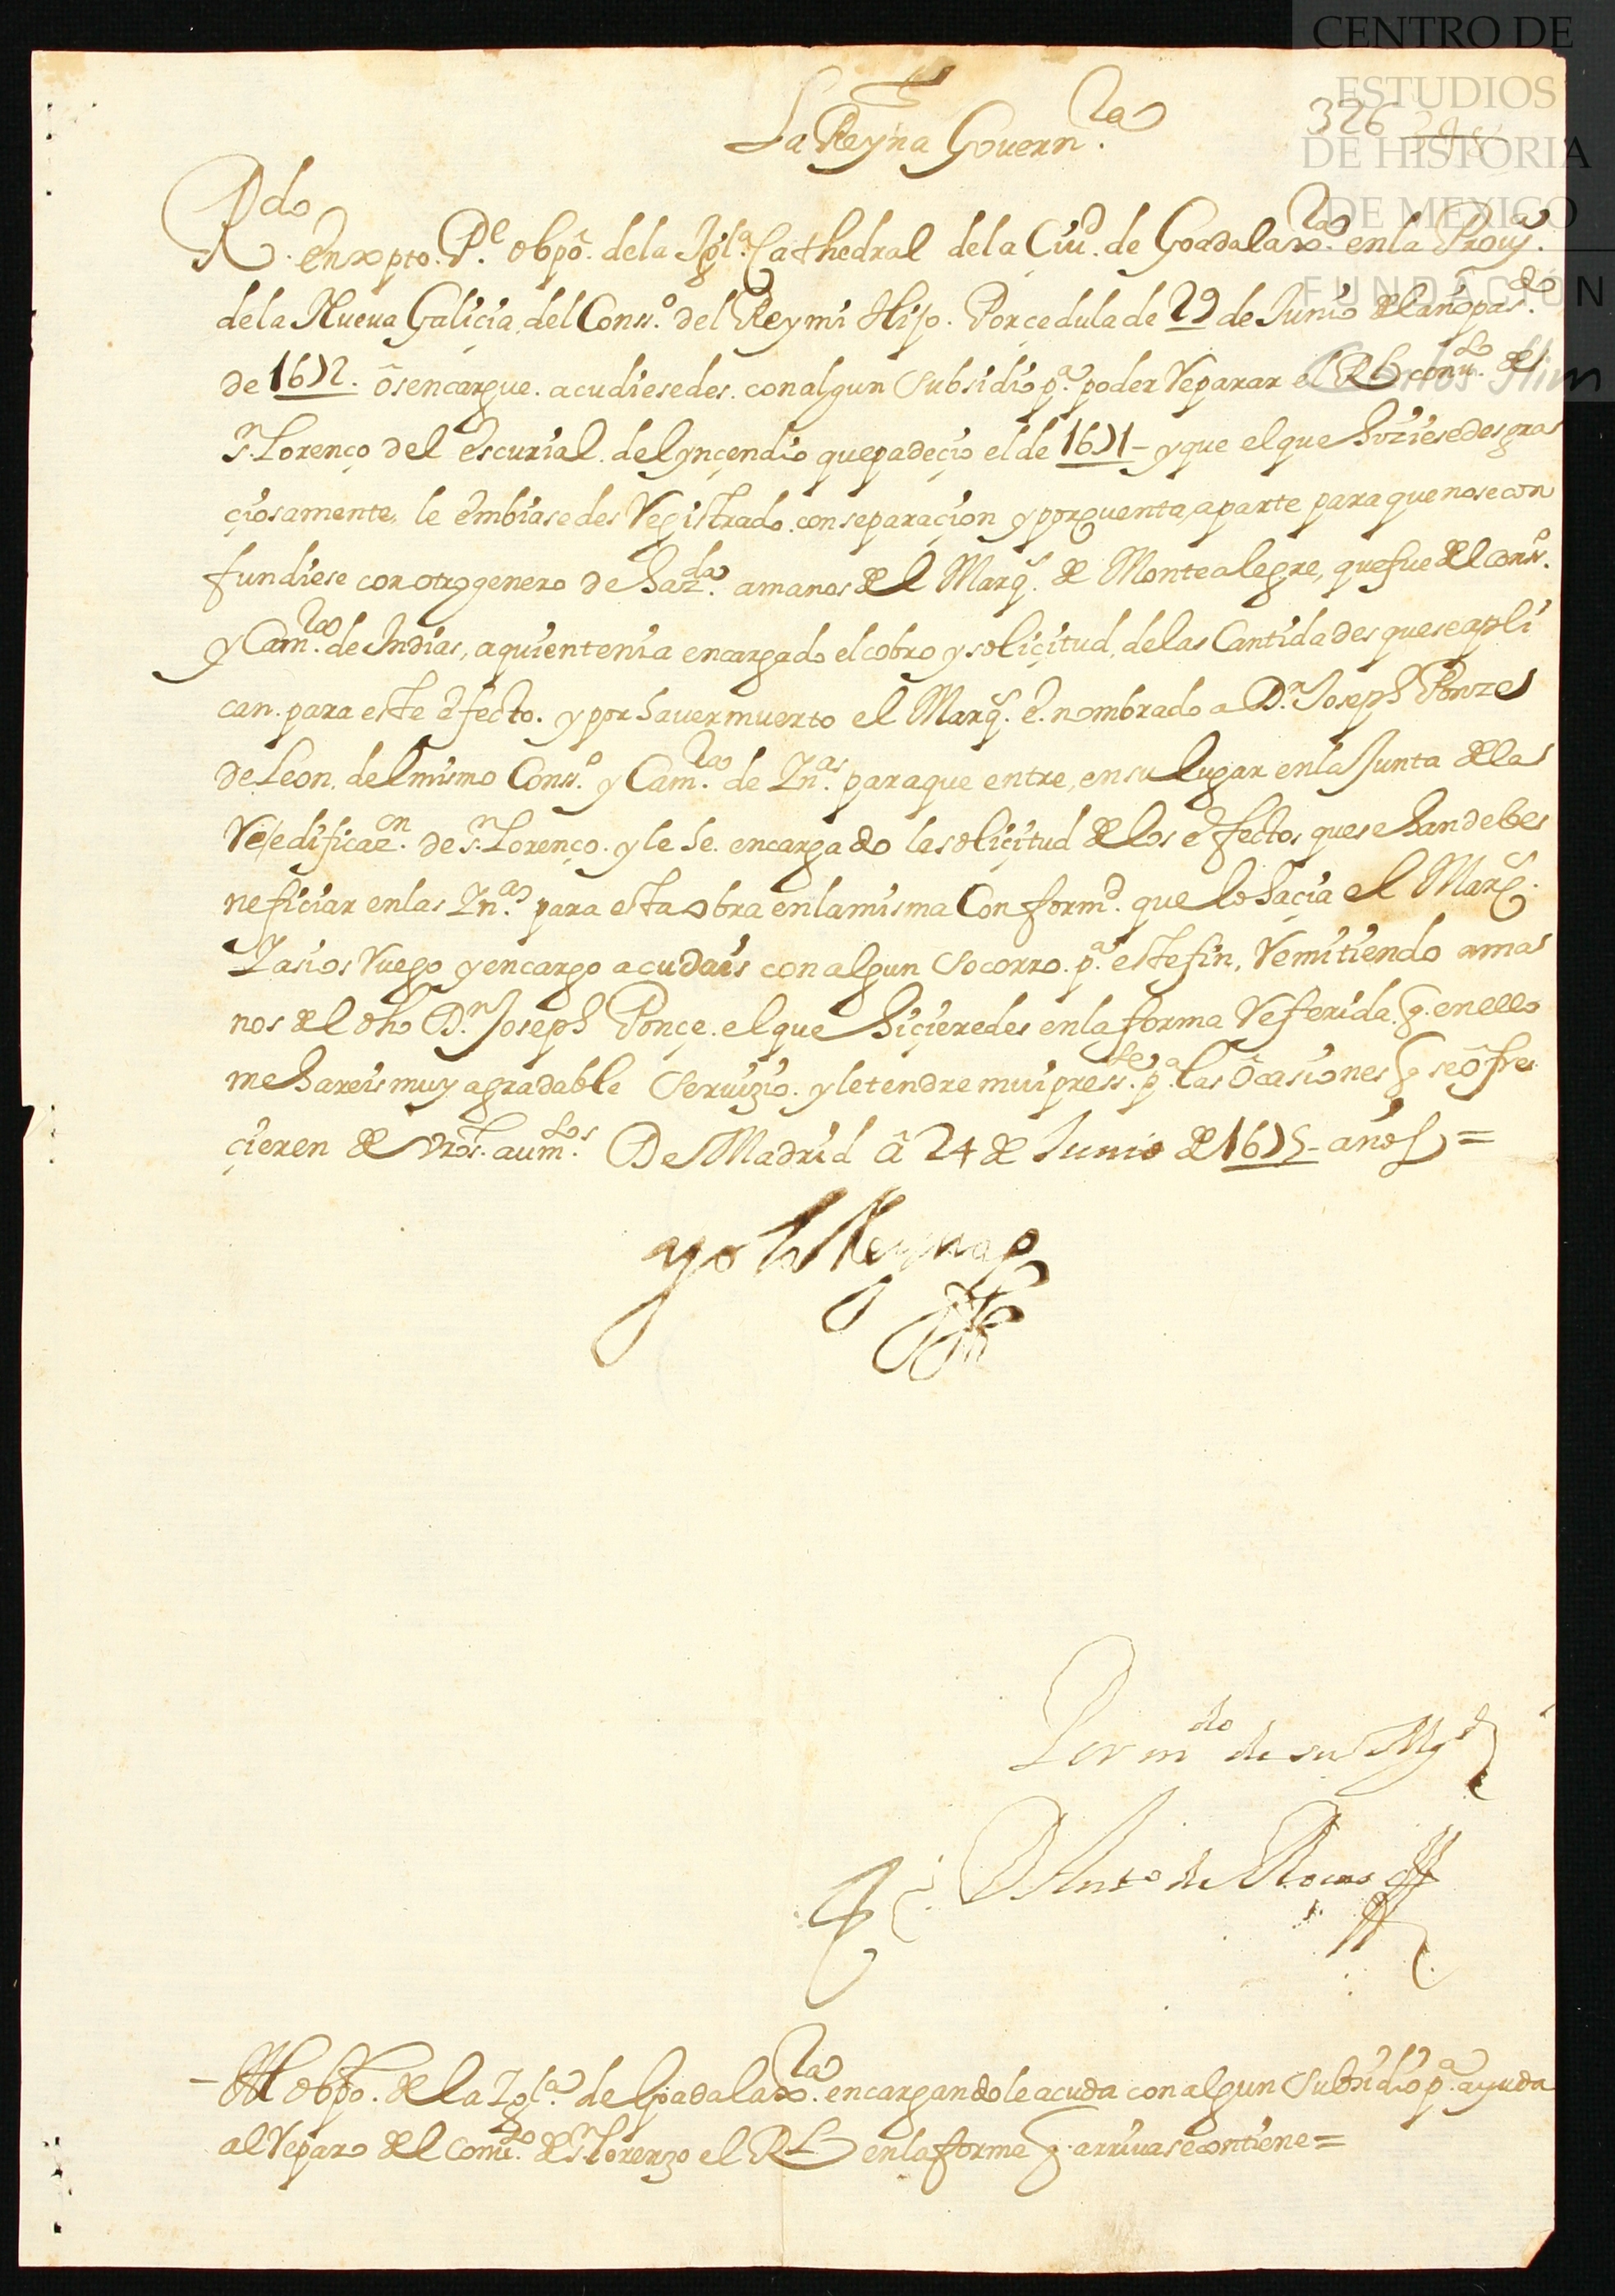 CENTRO DE
ESTUDIOS
DE HISTORIA
DE MEXICO
FUNDACIÓN
Carlos Slim
326
La Reyna Gouern.ra
R.do en xpto. P.e obpo. de la Igl.a Cathedral de la Ciu.d de Goadalax.ra en la Prou.a
de la Nueua Galicia, del Cons.o del Rey mi Hijo. Por cedula de 29 de Junio del año pas.do
de 1672. os encargue. acudiesedes. con algun subsidio p.a poder Reparar el Rl conu.to de
S.n Lorenço del escurial. del ynçendio que padeçio el de 1671- y que el que hiziesedes gra
çiosamente, le embiasedes Registrado. con separaçion y por quenta, aparte para que no se con
fundiese con otro genero de haz.da a manos del Marq.s de Montealegre, que fue del cons.o
y Cam.ra de Indias, a quien tenia encargado el cobro y soliçitud, de las Cantidades que se apli
can. para este efecto. y por hauer muerto el Marq.s e. nombrado a D.n Joseph Ponze
de Leon. del mismo Cons.o y Cam.ra de Yn.as para que entre, en su lugar en la Junta de la
Reedificaç.on de S.n Lorenço. y le he. encargado la soliçitud de los efectos que se han de be
neficiar en las Yn.as para esta obra en la misma Conform.d que lo haçia el Marq.s
Y asi os Ruego y encargo acudais con algun socorro. p.a este fin, Remitiendo a ma
nos del dho D.n Joseph Ponçe. el que hiçieredes en la forma Referida. q. en ello
me hareis muy agradable seruizio. y le tendre mui press.te p.a las ocasiones q se ofre
çieren de vros. aum.tos De Madrid a 24 de Junio de 1675- años =
yo la Reyna
Por m.do de su Mg.d
D Ant.o de Rocas
- Al obpo. de la Igl.a de Goadalax.ra encargandole acuda con algun subsidio p.a ayuda
al Reparo del conu.to de S.n Lorenzo el Rl en la forma q. arriua se contiene =